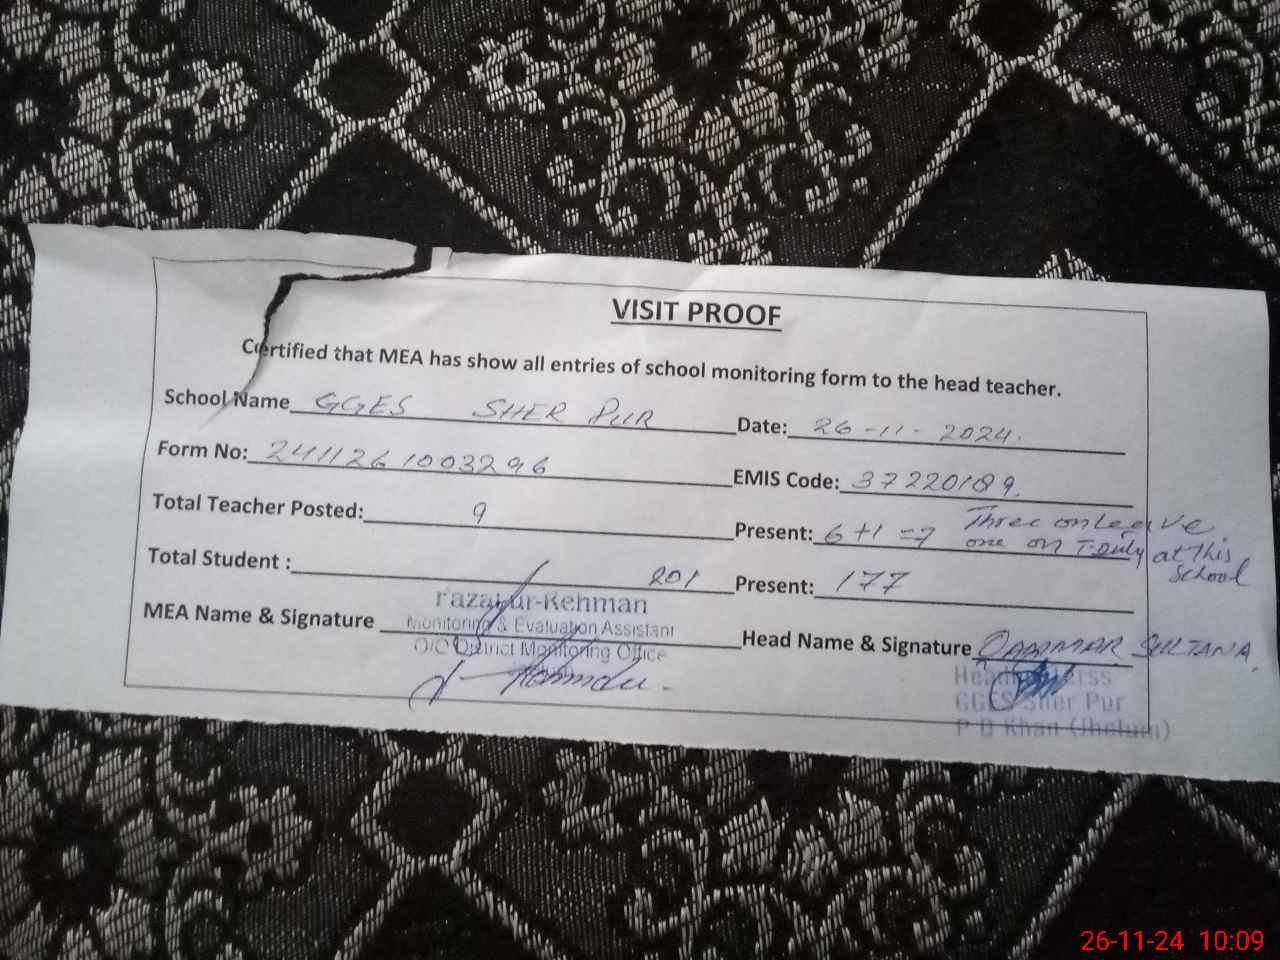 VISIT PROOF
Certified that MEA has show all entries of school monitoring form to the head teacher.
School Name GGES SHER PUR Date: 26-11-2024.
Form No: 2411261003296 EMIS Code: 37220189.
Total Teacher Posted: 9 Present: 6+1=7 Three on leave one on T.Duty at this school
Total Student : 201 Present: 177
MEA Name & Signature Head Name & Signature Qammar SULTANA.
Faza-ur-Rehman
Monitoring & Evaluation Assistant
O/O District Monitoring Office
Headmisterss
GGES Sher Pur
P D Khan (Jhelum)
26-11-24 10:09